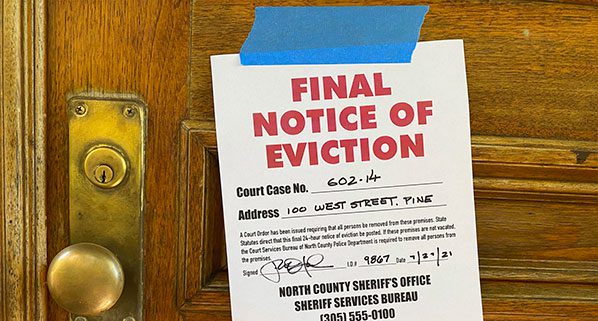 FINAL
NOTICE OF
EVICTION
Court Case No. 602-14
Address 100 WEST STREET. PINE
A Court Ordor has been issued requiring that all persons be removed from these premises. State
Statutes direct that this final 24-hour notice of eviction be posted. If these premises are not vacated,
the Court Services Bureau of North County Police Department is required to remove all persons from
the premises.
Signed I.D.# 9867 Date 7/27/21
NORTH COUNTY SHERIFF'S OFFICE
SHERIFF SERVICES BUREAU
(305) 555-0100